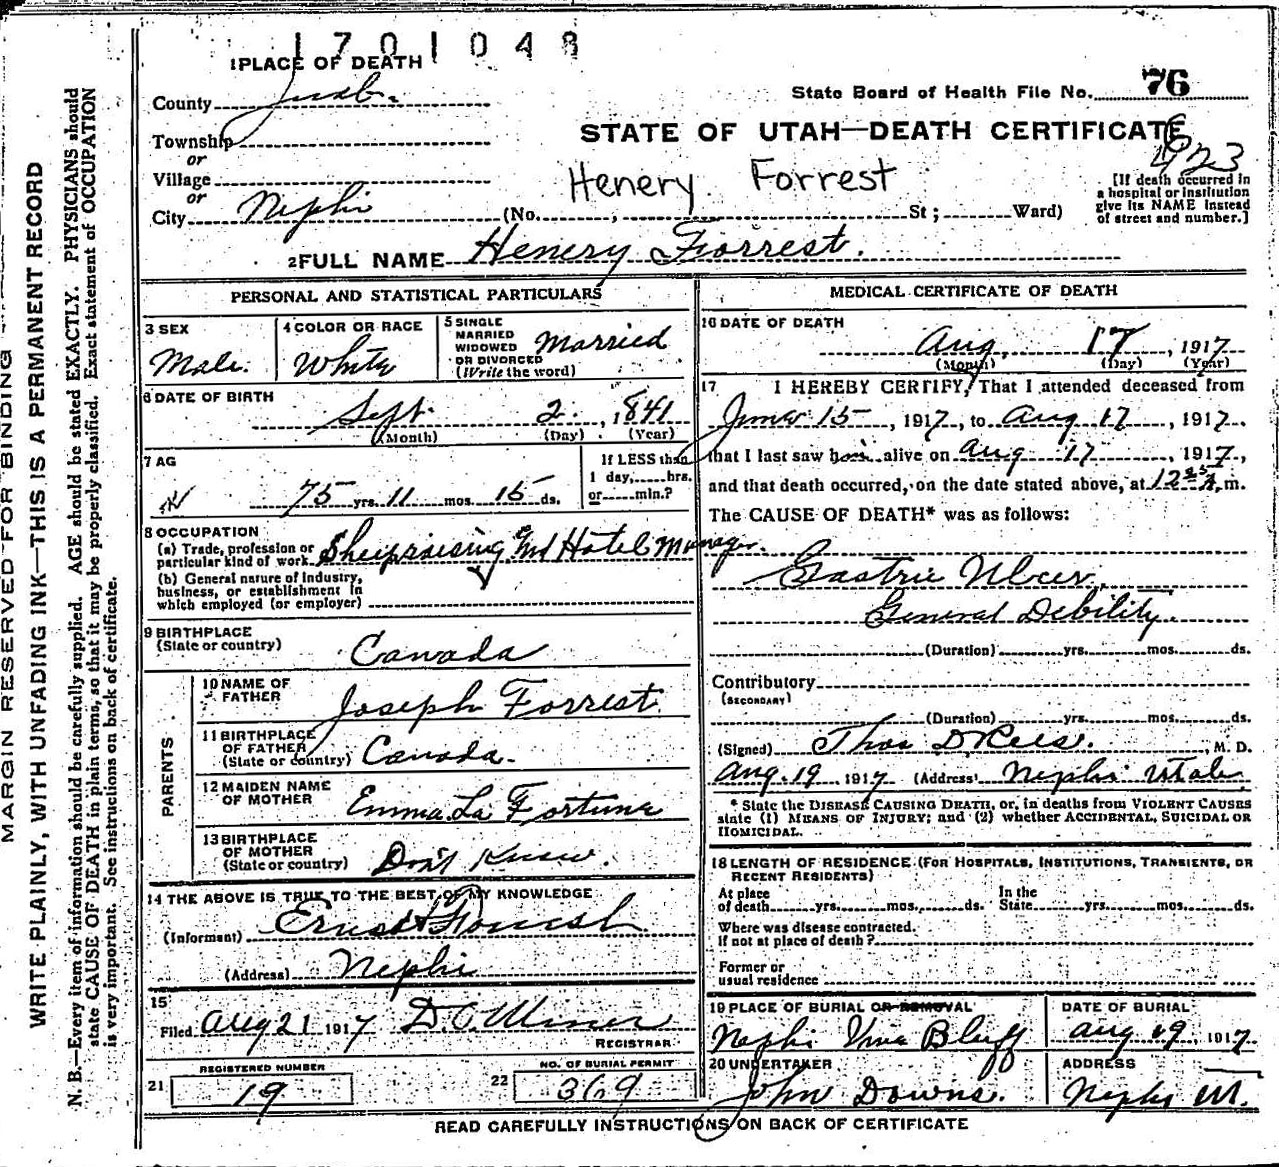 1701048
1 PLACE OF DEATH
County Juab.
State Board of Health File No. 76
Township
STATE OF UTAH—DEATH CERTIFICATE
or
Village
Henery Forrest
or
[If death occurred in
a hospital or institution
give its NAME instead
of street and number.]
City Nephi (No. , St ; Ward)
2 FULL NAME Henery Forrest.
PERSONAL AND STATISTICAL PARTICULARS
3 SEX
Male.
4 COLOR OR RACE
White
5 SINGLE
MARRIED
WIDOWED
OR DIVORCED
(Write the word)
Married
6 DATE OF BIRTH
Sept. 2. , 1841
(Month) (Day) (Year)
7 AG
75 yrs. 11 mos. 15 ds.
If LESS than
1 day, hrs.
or min.?
8 OCCUPATION
(a) Trade, profession or
particular kind of work Sheepraising and Hotel Manager.
(b) General nature of industry,
business, or establishment in
which employed (or employer)
9 BIRTHPLACE
(State or country) Canada
PARENTS
10 NAME OF
FATHER Joseph Forrest
11 BIRTHPLACE
OF FATHER
(State or country) Canada.
12 MAIDEN NAME
OF MOTHER Emma La Fortune
13 BIRTHPLACE
OF MOTHER
(State or country) Don't Know.
14 THE ABOVE IS TRUE TO THE BEST OF MY KNOWLEDGE
(Informant) Ernest Forrest
(Address) Nephi
15
Filed Aug 21 1917 D. O. Miner
REGISTRAR
21 REGISTERED NUMBER
19
22 NO. OF BURIAL PERMIT
369
MEDICAL CERTIFICATE OF DEATH
16 DATE OF DEATH
Aug. 17 , 1917
(Month) (Day) (Year)
17 I HEREBY CERTIFY, That I attended deceased from
June 15 , 1917, to Aug 17 , 1917.
that I last saw him alive on Aug 17 , 1917.,
and that death occurred, on the date stated above, at 12 A. m.
The CAUSE OF DEATH* was as follows:
Gastric Ulcer.
General Debility.
(Duration) yrs. mos. ds.
Contributory
(SECONDARY)
(Duration) yrs. mos. ds.
(Signed) Thos D Rees. , M. D.
Aug. 19 1917 (Address) Nephi Utah
* State the DISEASE CAUSING DEATH, or, in deaths from VIOLENT CAUSES
state (1) MEANS OF INJURY; and (2) whether ACCIDENTAL, SUICIDAL OR
HOMICIDAL.
18 LENGTH OF RESIDENCE (FOR HOSPITALS, INSTITUTIONS, TRANSIENTS, OR
RECENT RESIDENTS)
At place
of death yrs. mos. ds.
In the
State yrs. mos. ds.
Where was disease contracted.
If not at place of death?
Former or
usual residence
19 PLACE OF BURIAL OR REMOVAL
Nephi Vine Bluff
DATE OF BURIAL
Aug 19 , 1917.
20 UNDERTAKER
John Downs.
ADDRESS
Nephi Ut.
READ CAREFULLY INSTRUCTIONS ON BACK OF CERTIFICATE
MARGIN RESERVED FOR BINDING
WRITE PLAINLY, WITH UNFADING INK—THIS IS A PERMANENT RECORD
N. B.—Every item of information should be carefully supplied. AGE should be stated EXACTLY. PHYSICIANS should
state CAUSE OF DEATH in plain terms, so that it may be properly classified. Exact statement of OCCUPATION
is very important. See instructions on back of certificate.